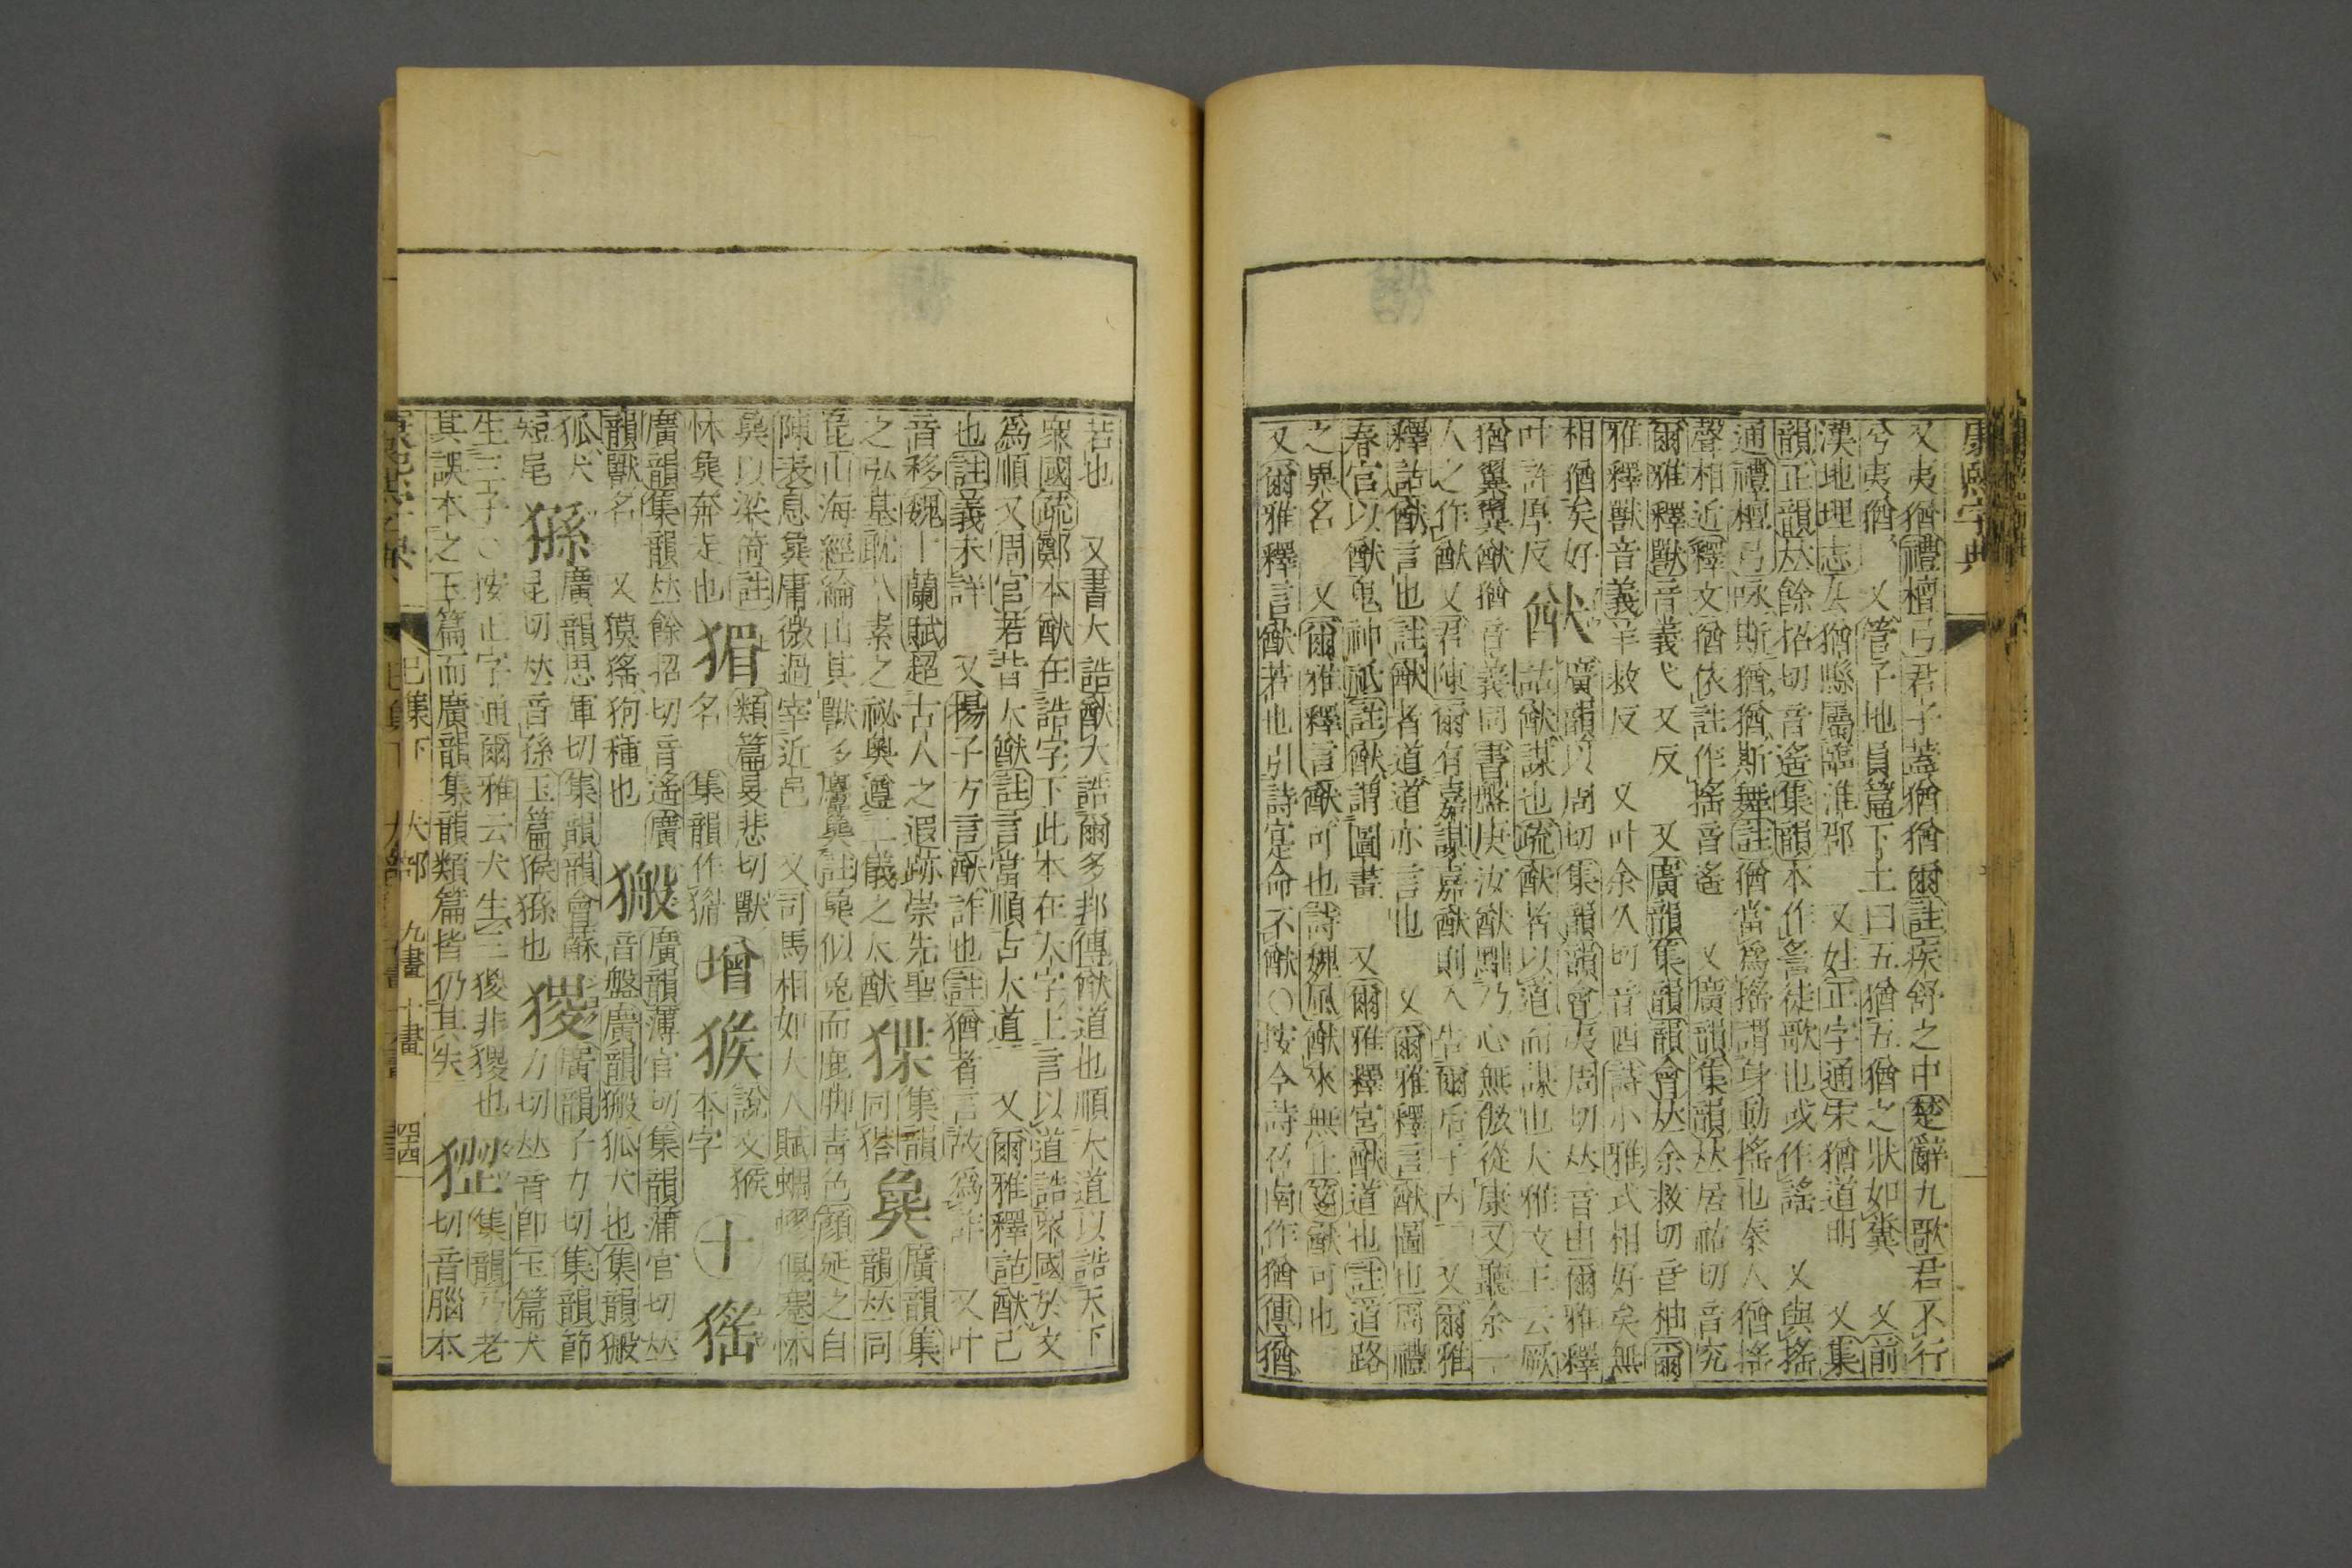 康熙字典
又夷猶禮檀弓君子蓋猶猶爾註疾舒之中楚辭九歌君不行
兮夷猶 又管子地員篇下土曰五猶五猶之狀如糞 又前
漢地理志厹猶縣屬臨淮郡 又姓正字通宋猶道明 又集
韻正韻𠀤餘招切音遙集韻本作䚻徒歌也或作謠 又與搖
通禮檀弓咏斯猶猶斯舞註猶當爲搖謂身動搖也秦人猶搖
聲相近釋文猶依註作搖音遙 又廣韻集韻𠀤居祐切音究
爾雅釋獸音義弋又反 又廣韻集韻韻會𠀤余救切音柚爾
雅釋獸音義羊救反 又叶余久切音酉詩小雅式相好矣無
相猶矣好叶許厚反
猷
廣韻以周切集韻韻會夷周切𠀤音由爾雅釋
詁猷謀也疏猷者以道而謀也大雅文王云厥
猶翼翼猷猶音義同書盤庚汝猷黜乃心無傲從康又聽余一
人之作猷又君陳爾有嘉謀嘉猷則入告爾后于內 又爾雅
釋詁猷言也註猷者道道亦言也 又爾雅釋言猷圖也周禮
春官以猷鬼神祇註猷謂圖畫 又爾雅釋宮猷道也註道路
之異名 又爾雅釋言猷可也詩魏風猷來無止箋猷可也
又爾雅釋言猷若也引詩寔命不猷○按今詩召南作猶傳猶
若也 又書大誥猷大誥爾多邦傳猷道也順大道以誥天下
衆國疏鄭本猷在誥字下此本在大字上言以道誥衆國於文
爲順又周官若昔大猷註言當順古大道 又爾雅釋詁猷已
也註義未詳 又揚子方言猷詐也註猶者言故爲詐 又叶
音移魏卞蘭賦超古人之遐跡崇先聖
之弘基耽八素之祕奧遵二儀之大猷
猓
集韻
同猺
㲋
廣韻集
韻𠀤同
㲋山海經綸山其獸多麢㲋註㲋似兔而鹿脚靑色顏延之自
陳表息㲋庸微過宰近邑 又司馬相如大人賦蜩蟉偃蹇怵
㲋以梁倚註
怵㲋奔走也
猸
類篇旻悲切獸
名 集韻作㺳
增
𤠣
說文猴
本字
十
猺
廣韻集韻𠀤餘招切音遙廣
韻獸名 又獏猺狗種也
㺜
廣韻薄官切集韻蒲官切𠀤
音盤廣韻㺜狐犬也集韻㺜
狐犬
短尾
猻
廣韻思軍切集韻韻會蘇
昆切𠀤音孫玉篇猴猻也
㹂
廣韻子力切集韻節
力切𠀤音卽玉篇犬
生三子○按正字通爾雅云犬生三猣非㹂也
其誤本之玉篇而廣韻集韻類篇皆仍其失
𤟹
集韻乃老
切音腦本
巳集下 犬部 九畫 十畫 四四